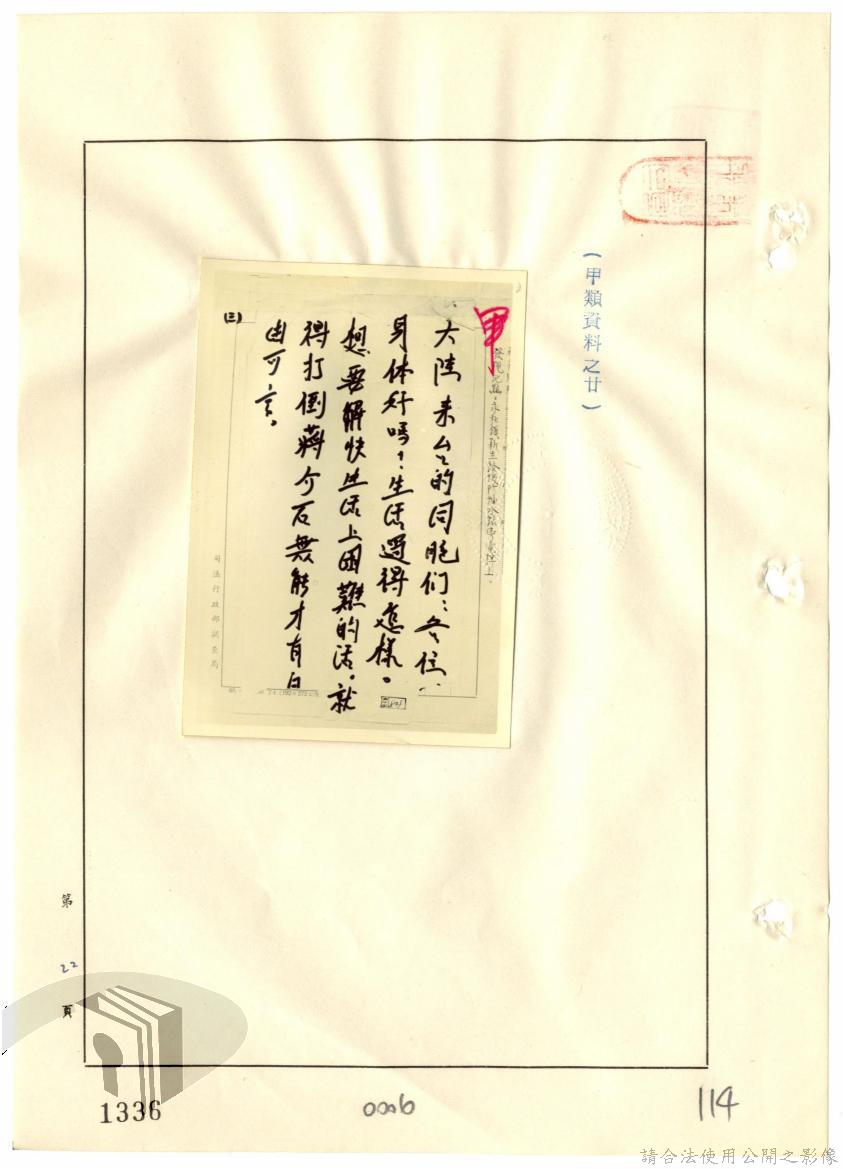 (甲類資料之廿)
甲
大陸来台的同胞们:各位:
身体好嗎?生活過得怎樣。
想要解快生活上困難的活。就
得打倒蔣介石無能才有自
由可言。
(三)
司法行政部調查局
第 22 頁
1336
0006
114
請合法使用公開之影像